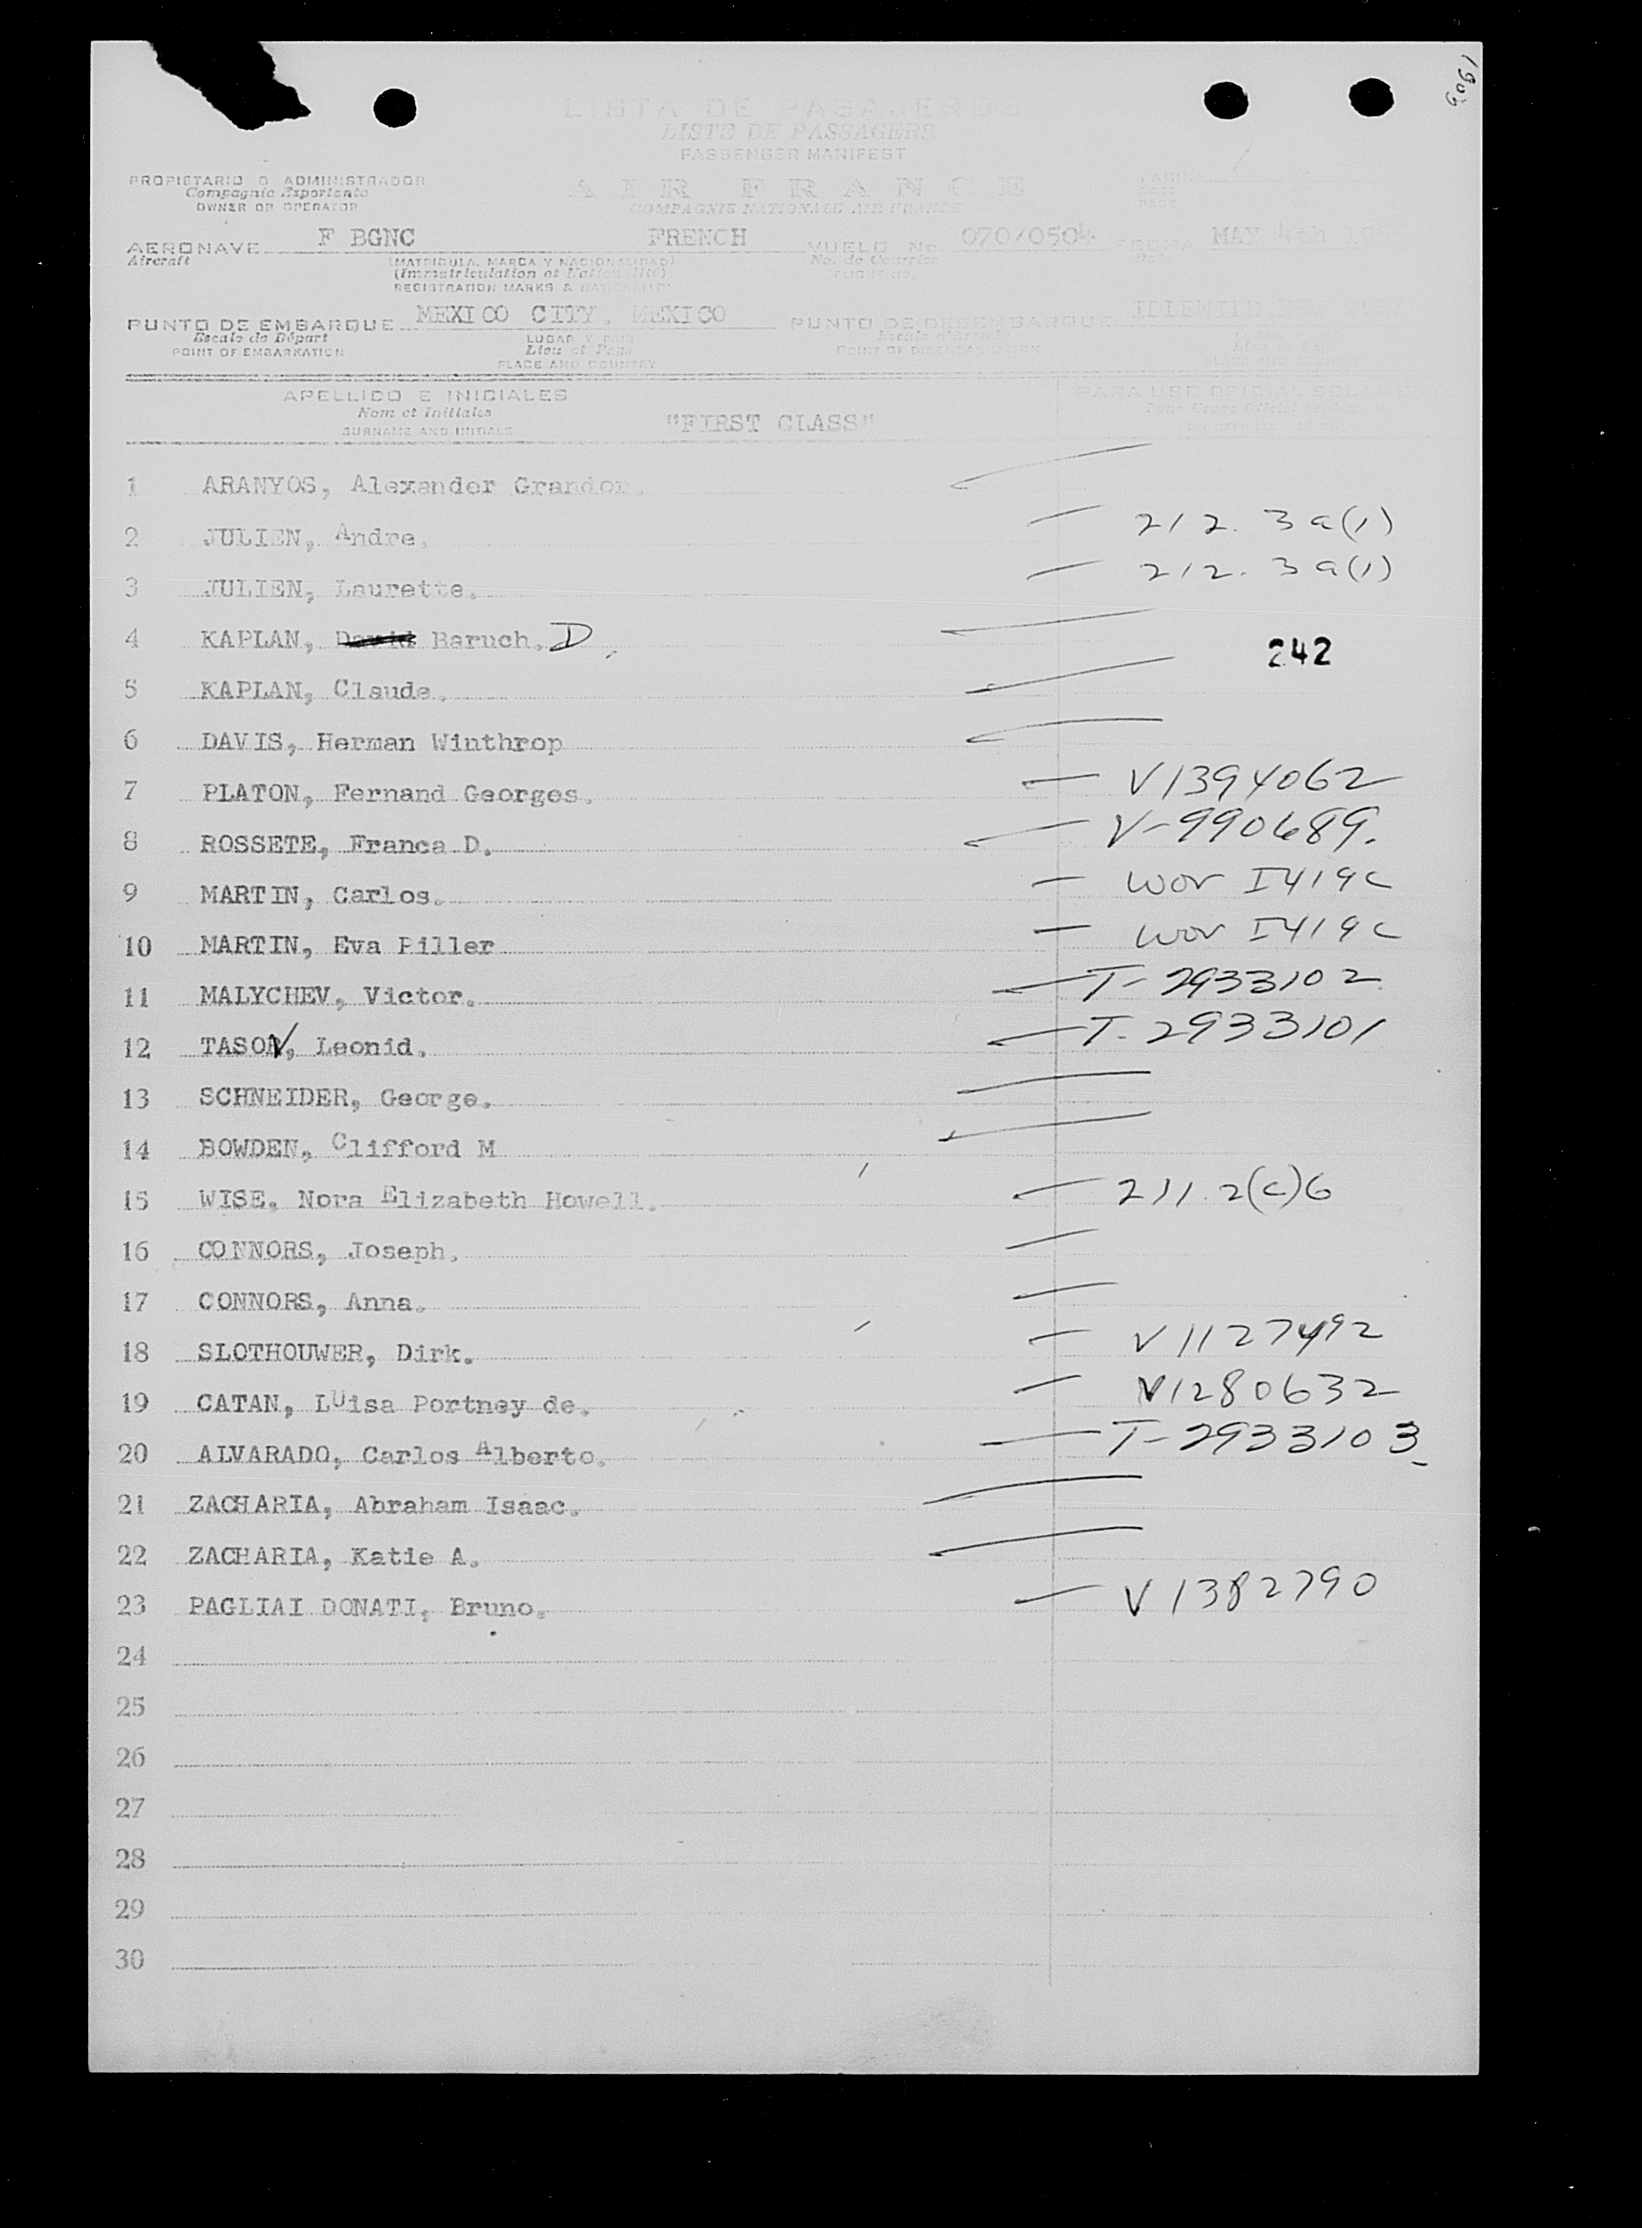 LISTA DE PASAJEROS
LISTE DE PASSAGERS
PASSENGER MANIFEST
PROPIETARIO O ADMINISTRADOR
Compagnie Exportente
OWNER OR OPERATOR
AIR FRANCE
COMPAGNIE NATIONALE AIR FRANCE
AERONAVE F BGNC FRENCH VUELO No 070/0504 FECHA MAY 4th
Aircraft (MATRICULA, MARCA Y NACIONALIDAD) No. de Courrier
(Immatriculation et Nationalité)
REGISTRATION MARKS &
PUNTO DE EMBARQUE MEXICO CITY, MEXICO PUNTO DE DESEMBARQUE
Escale de Départ LUGAR Y PAIS
POINT OF EMBARKATION Lieu et Pays
PLACE AND COUNTRY
APELLIDO E INICIALES PARA USO OFICIAL
Nom et Initiales
SURNAME AND INITIALS
"FIRST CLASS"
1 ARANYOS, Alexander
2 JULIEN, Andre. 212.3a(1)
3 JULIEN, Laurette. 212.3a(1)
4 KAPLAN, David Baruch. D
242
5 KAPLAN, Claude.
6 DAVIS, Herman Winthrop
7 PLATON, Fernand Georges. V1394062
8 ROSSETE, Franca D. V-990689.
9 MARTIN, Carlos. wov I419c
10 MARTIN, Eva Piller wov I419c
11 MALYCHEV, Victor. T-2933102
12 TASON, Leonid. T-2933101
13 SCHNEIDER, George.
14 BOWDEN, Clifford M
15 WISE. Nora Elizabeth Howell. 211.2(c)6
16 CONNORS, Joseph.
17 CONNORS, Anna.
18 SLOTHOUWER, Dirk. V1127492
19 CATAN, LUisa Portney de. V1280632
20 ALVARADO, Carlos Alberto. T-2933103
21 ZACHARIA, Abraham Isaac.
22 ZACHARIA, Katie A.
23 PAGLIAI DONATI, Bruno. V1382790
24
25
26
27
28
29
30